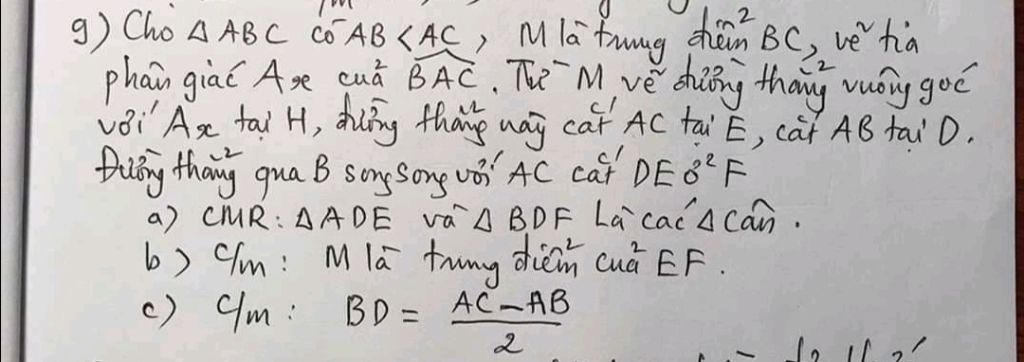 9) Cho Δ ABC có AB < AC, M là trung điểm BC, vẽ tia
phân giác Ax của BAC. Từ M vẽ đường thẳng vuông góc
với Ax tại H, đường thẳng này cắt AC tại E, cắt AB tại D.
Đường thẳng qua B song song với AC cắt DE ở F
a) CMR: Δ ADE và Δ BDF Là các Δ cân.
b) c/m: M là trung điểm của EF.
c) c/m: BD = (AC - AB)/2